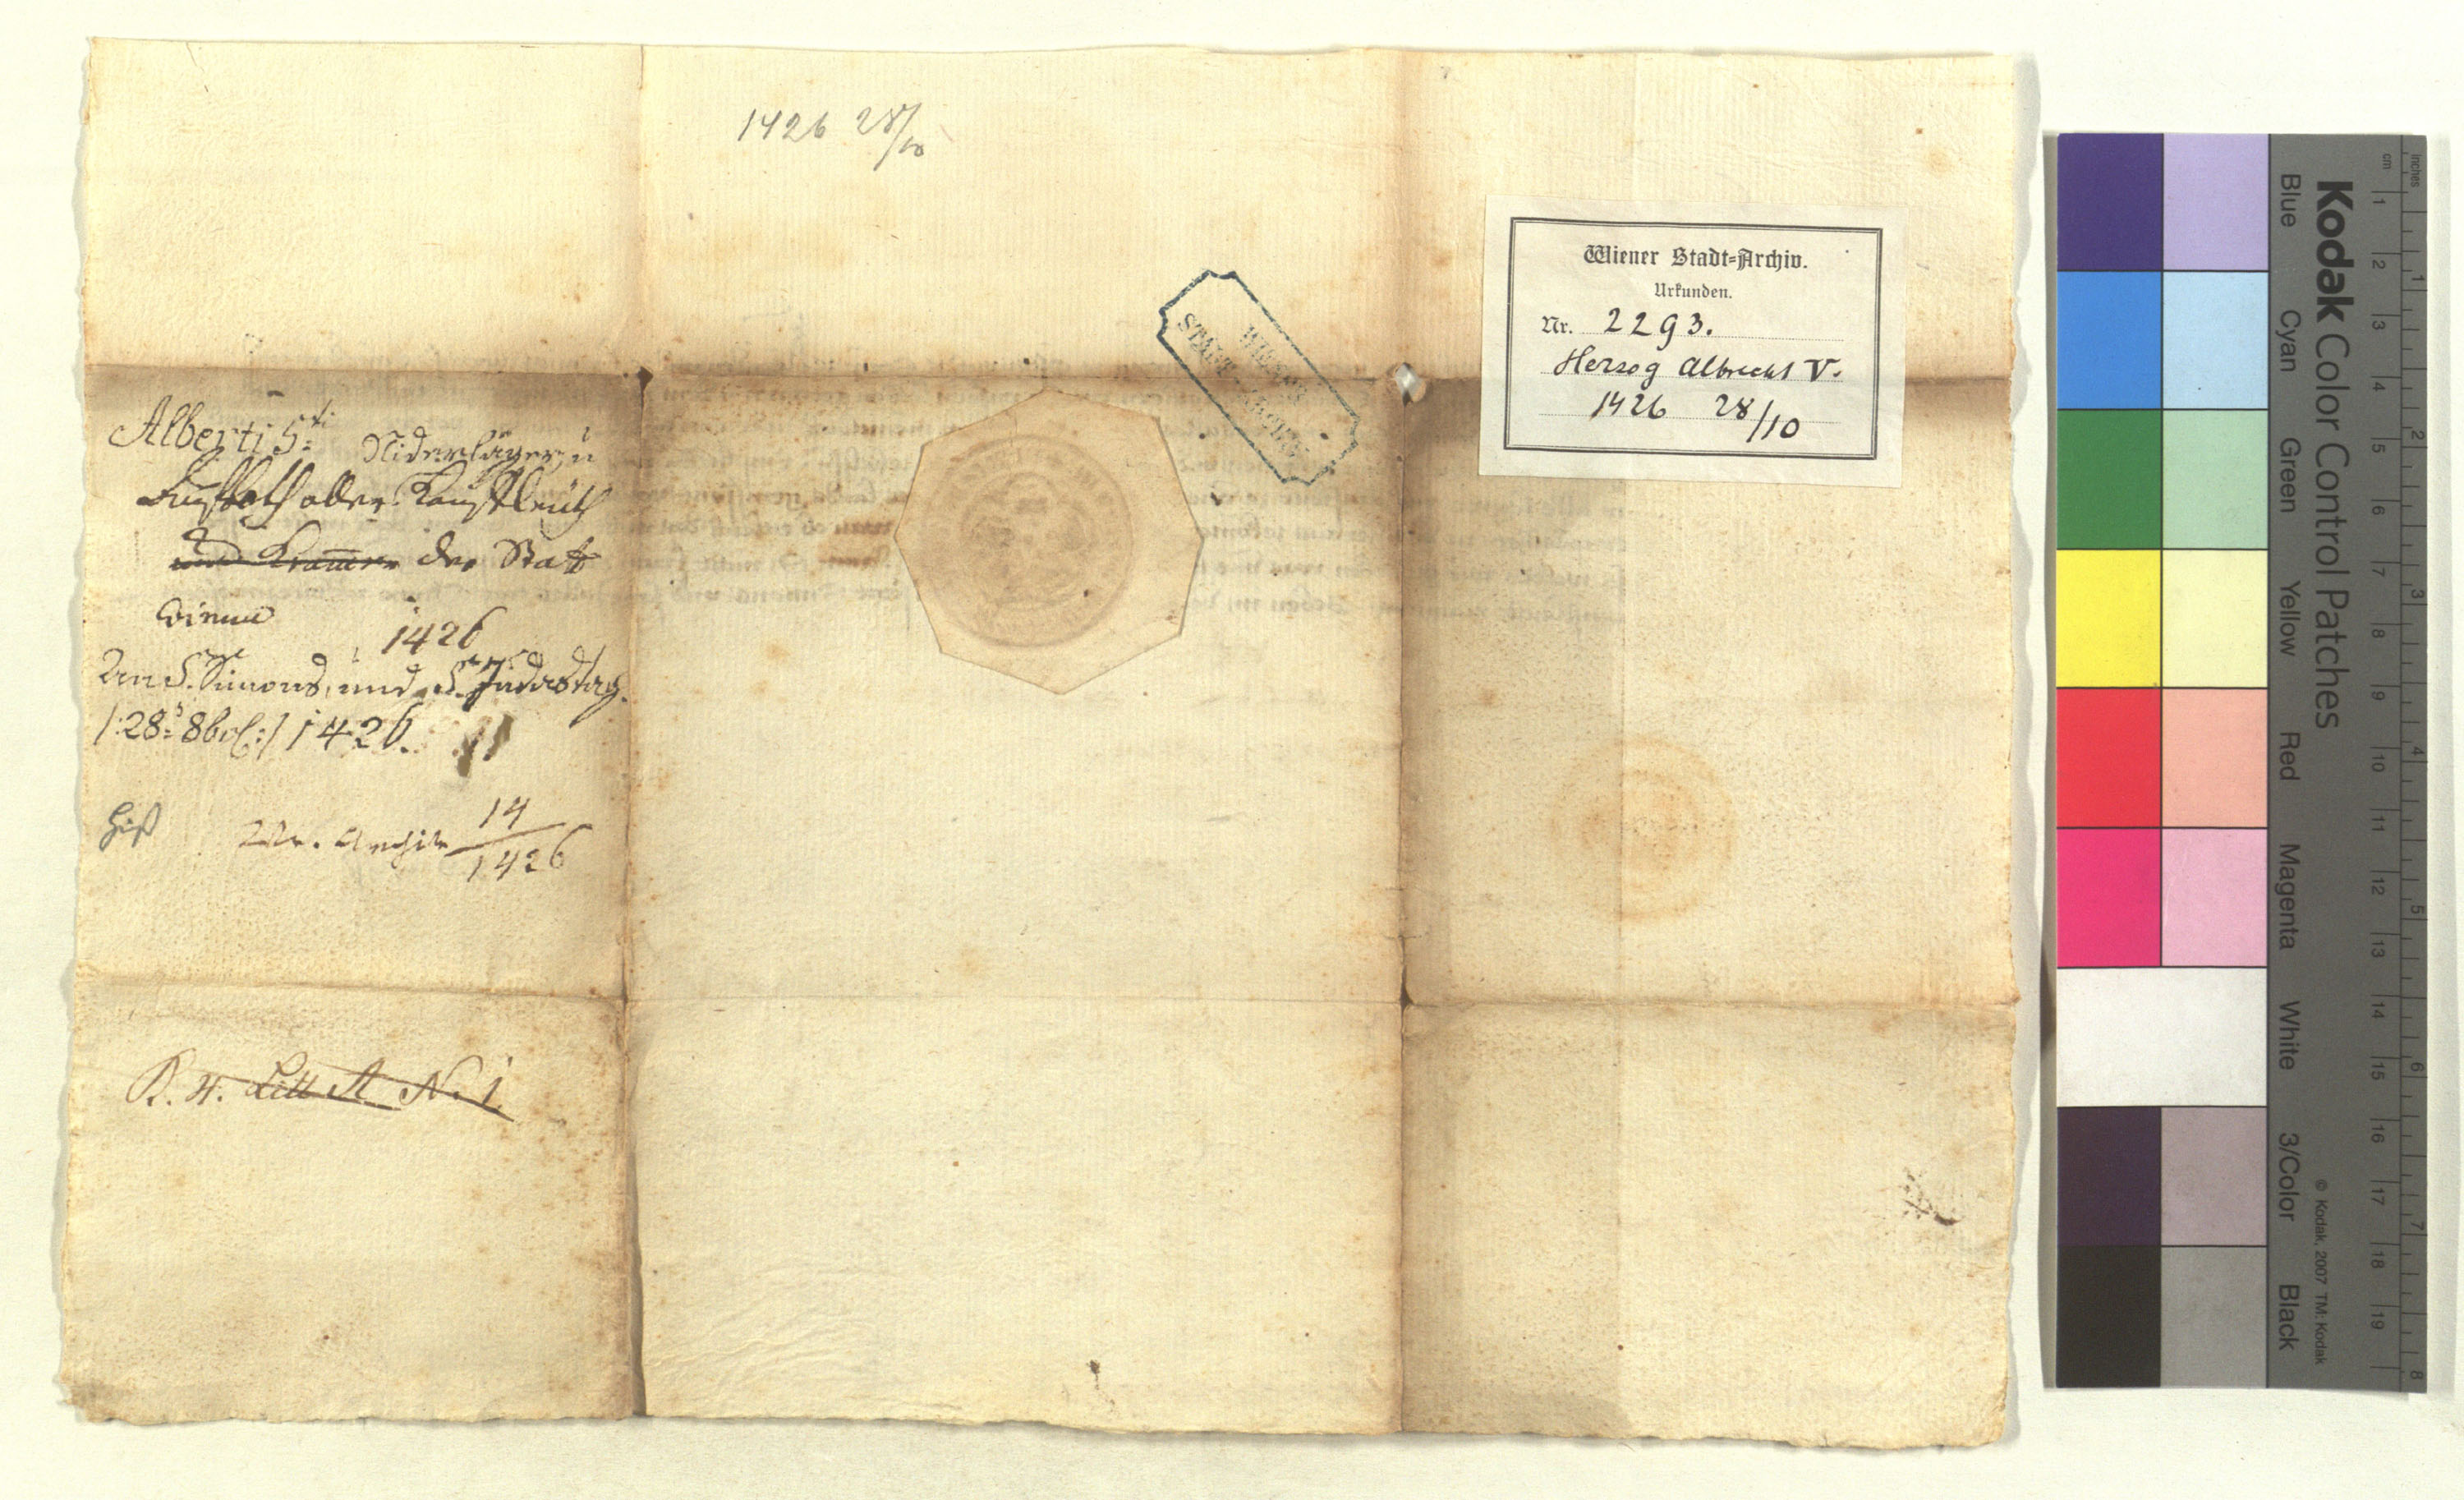 1426 28/10
Wiener Stadt=Archiv.
Urkunden.
Nr. 2293.
Herzog Albrecht V.
1426 28/10
WIENER
STADT-ARCHIV
Alberti 5ti Niderläger, u
oder Kaufleuth
und Kramern der Statt
Wienn
1426
An S. Simons, und S. Judastag.
/:28: 8br:/ 1426.
Hist Archiv 14/1426
R. 4. Litt A N. 1.
Kodak Color Control Patches
Blue Cyan Green Yellow Red Magenta White 3/Color Black
© Kodak, 2007 TM: Kodak
cm 1 2 3 4 5 6 7 8 9 10 11 12 13 14 15 16 17 18 19
inches 1 2 3 4 5 6 7 8